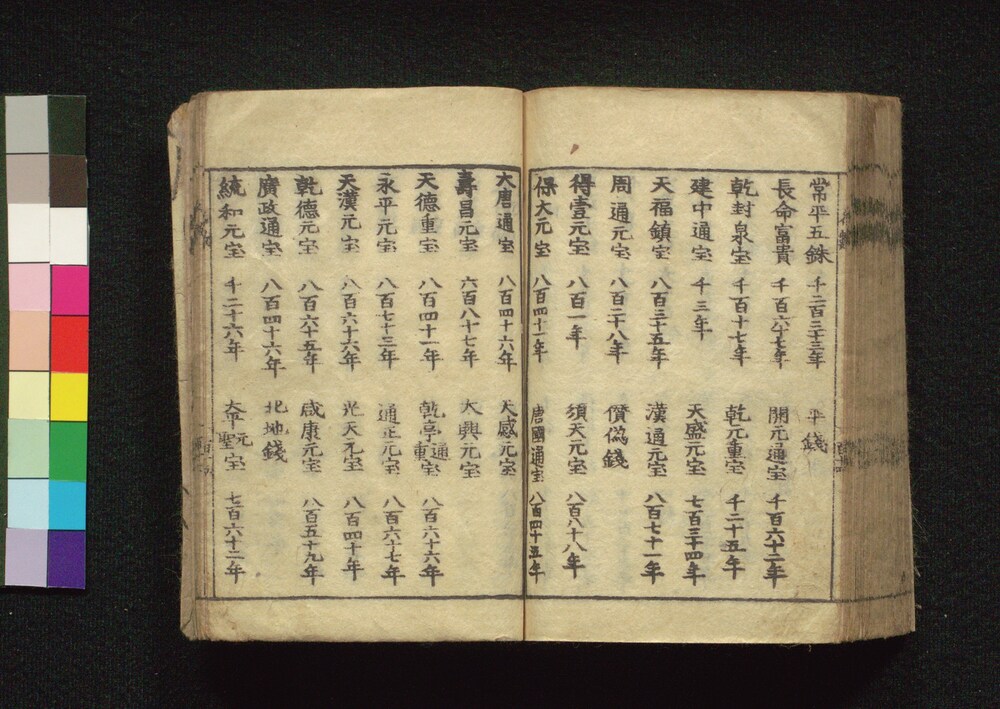 常平五銖 千二百三十三年 平錢
長命富貴 千百六十七年 開元通宝 千百六十二年
乾封泉宝 千百十七年 乾元重宝 千二十五年
建中通宝 千三年 天盛元宝 七百三十四年
天福鎮宝 八百三十五年 漢通元宝 八百七十一年
周通元宝 八百二十八年 價偽錢
得壹元宝 八百一年 須天元宝 八百八十八年
保大元宝 八百四十一年 唐國通宝 八百四十五年
大唐通宝 八百四十六年 天感元宝
壽昌元宝 六百八十七年 大興元宝
天德重宝 八百四十一年 乾亨通重宝 八百六十六年
永平元宝 八百七十三年 通正元宝 八百六十七年
天漢元宝 八百六十六年 光天元宝 八百四十年
乾德元宝 八百六十五年 咸康元宝 八百五十九年
廣政通宝 八百四十六年 北地錢
統和元宝 千二十六年 太平聖元宝 七百六十二年